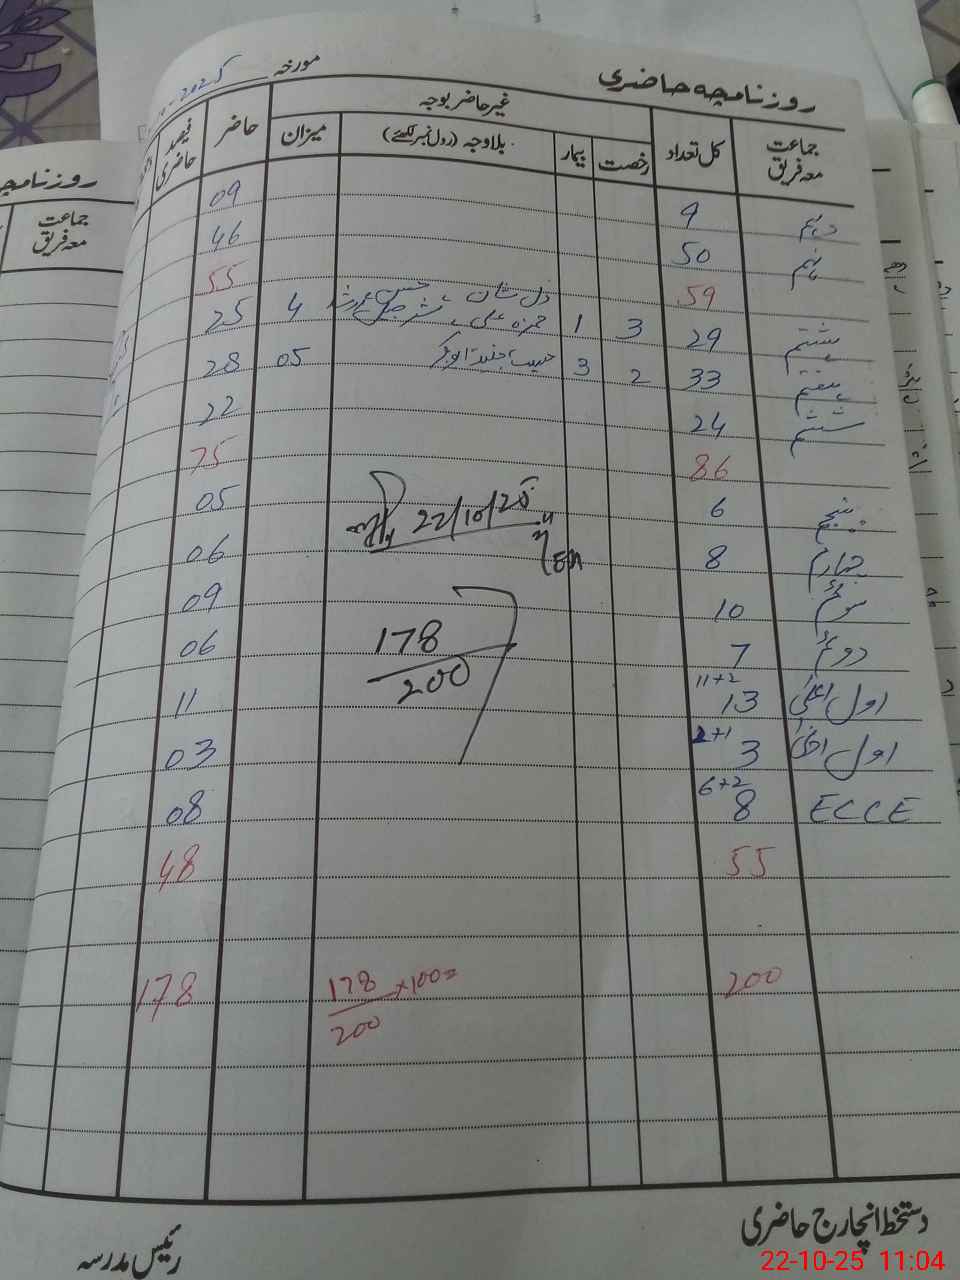 روزنامچہ حاضری
مورخہ 2025
جماعت معہ فریق کل تعداد غیر حاضر بوجہ حاضر فیصد حاضری
رخصت بیمار بلاوجہ (رول نمبر لکھئے) میزان
دہم 9 09
نہم 50 46
59 55
ہشتم 29 3 1 حمزہ علی 4 25
ہفتم 33 2 3 05 28
ششم 24 22
86 75
پنجم 6 05
22/10/25
چہارم 8 06
سوئم 10 09
178
200
دوئم 7 06
اول اعلیٰ 11+2 13 11
اول ادنیٰ 2+1 3 03
ECCE 6+2 8 08
55 48
200 178/200 ×100= 178
دستخط انچارج حاضری
رئیس مدرسہ
روزنامچہ
جماعت
معہ فریق
22-10-25 11:04